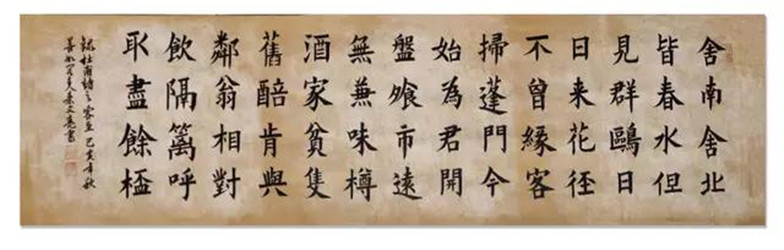 舍南舍北
皆春水但
見群鷗日
日来花径
不曾緣客
掃蓬門今
始為君開
盤飱市遠
無兼味樽
酒家貧隻
舊醅肯與
鄰翁相對
飲隔籬呼
取盡餘桮
錄杜甫詩之客至 己亥年秋